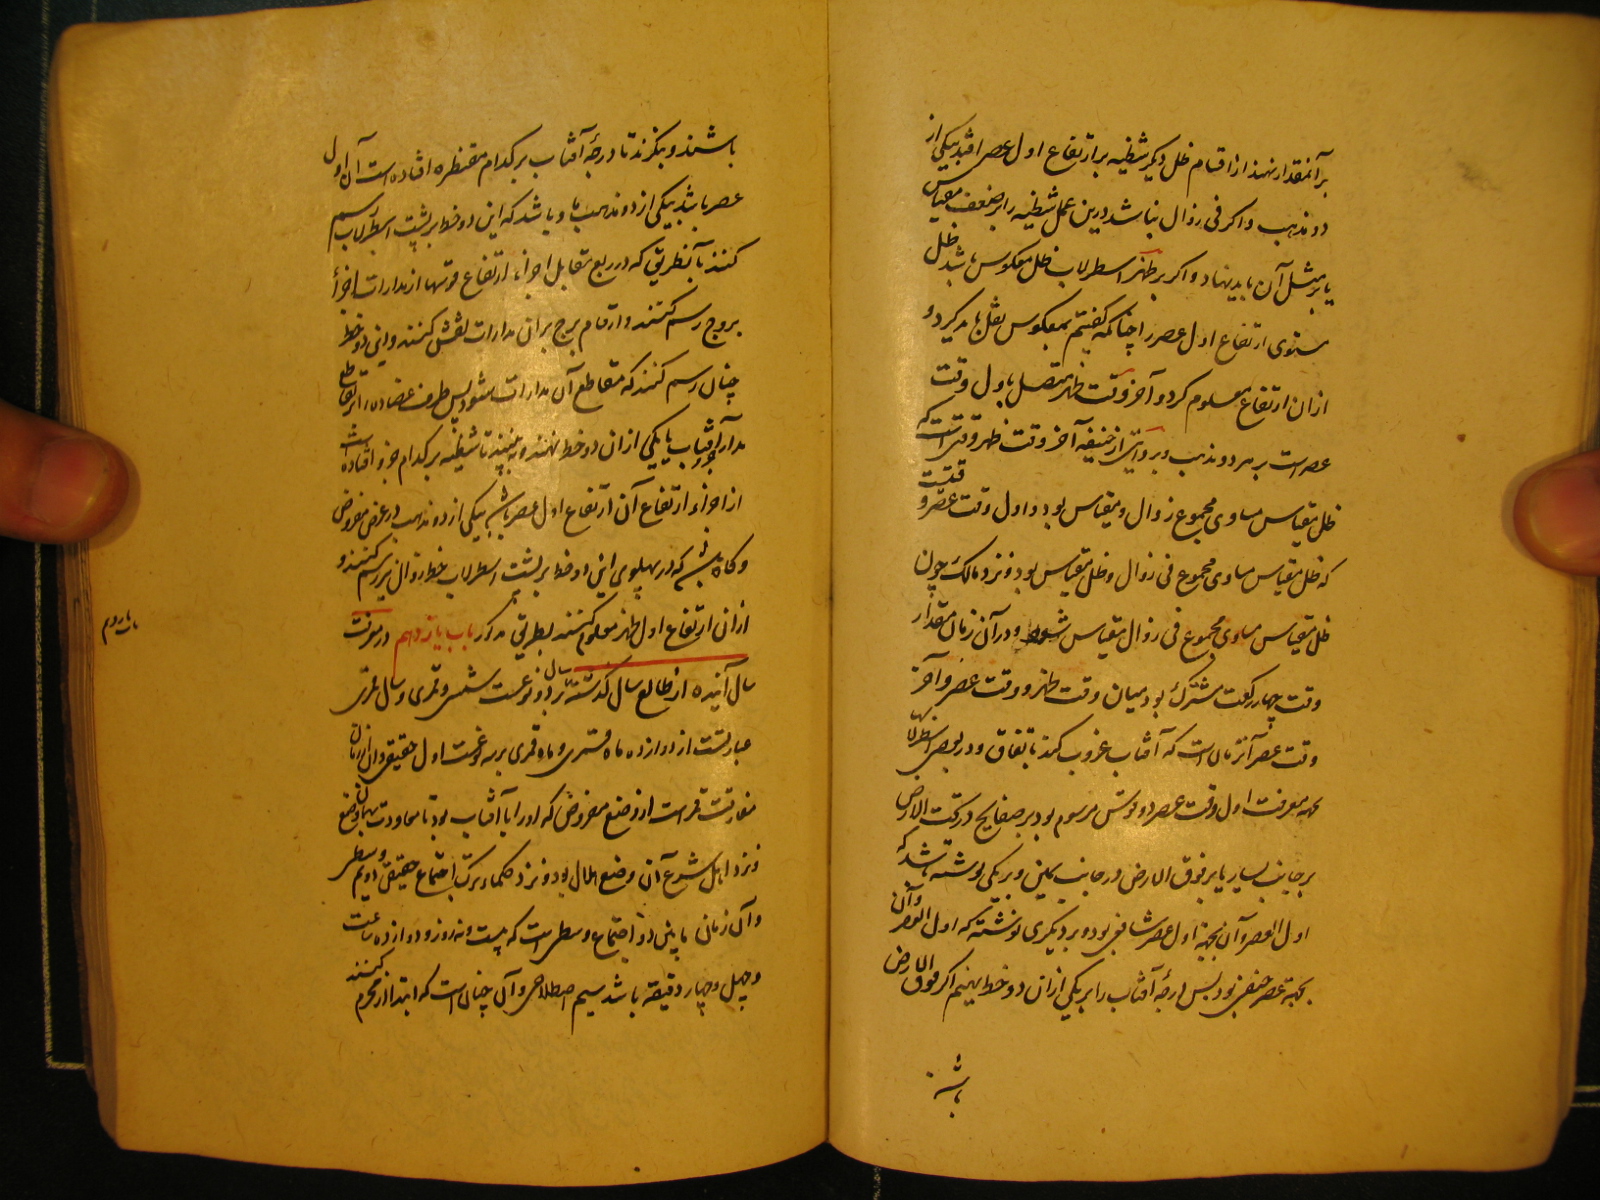 بر آنمقدار نهند از اقسام ظل دیگر شظیه بر ارتفاع اول عصر افتد بیکی از
دو مذهب و اگر فی زوال نباشد درین عمل شظیه را بر ضعف مقیاس
یا بر مثل آن باید نهاد و اگر بر ظهر اسطرلاب ظل معکوس باشد ظل
مستوی ارتفاع اول عصر را چنانکه گفتیم بمعکوس نقل باید کرد و
ازان ارتفاع معلوم کرد و آخر وقت ظهر متصل باول وقت
عصر است بر هر دو مذهب و بروایتی از حنیفه آخر وقت ظهر وقتی است که
ظل مقیاس مساوی مجموع زوال و مقیاس بود و اول وقت عصر وقتیست
که ظل مقیاس مساوی مجموع فی زوال و ظل مقیاس بود و نزد مالک چون
ظل مقیاس مساوی مجموع فی زوال مقیاس شود و در آن زمان مقدار
وقت چهار رکعت مشترک بود میان وقت ظهر و وقت عصر و آخر
وقت عصر آنزمان است که آفتاب غروب کند باتفاق و در بعضی اسطرلابها
بجهه معرفت اول وقت عصر دو قوس مرسوم بود بر صفایح در تحت الارض
بر جانب یسار یا بر فوق الارض در جانب یمین و بر یکی نوشته باشد که
اول العصر و آن بجهة اول عصر شافعی بود و بر دیگری نوشته که اول العصر و آن
بجهة عصر حنفی بود پس درجه آفتاب را بر یکی ازان دو خط نهیم اگر فوق الارض
باشند و بنگرند تا درجهٔ آفتاب بر کدام مقنطره افتاده است آن اول
عصر باشد بیکی از دو مذهب و باشد که این دو خط بر پشت اسطرلاب رسم
کنند بآنطریق که در ربع مقابل اجزاء ارتفاع قوسها از مدارات اجزاء
بروج رسم کنند و ارقام برج بران مدارات نقش کنند و این دو خط
چنان رسم کنند که مقاطع آن مدارات شود پس طرف عضاده را بر تقاطع
مدار آفتاب با یکی ازان دو خط نهند و به بینند تا شظیه بر کدام جزو افتاده است
از اجزاء ارتفاع آن ارتفاع اول عصر باشد بیکی از دو مذهب در عرض مفروض
و گاه باشد که در پهلوی این دو خط بر پشت اسطرلاب خط زوال نیز رسم کنند و
ازان ارتفاع اول ظهر معلوم کنند بطریق مذکور باب یازدهم در معرفت
سال آینده از طالع سال گذشته سال بر دو نوعست شمسی و قمری و سال قمری
عبارتست از دوازده ماه قمری و ماه قمری بر سه نوعست اول حقیقی و ان از زمان
مفارقت قمر است از وضع مفروض که او را با آفتاب بود تا معاودت بهمان وضع
و نزد اهل شرع آن وضع هلال بود و نزد حکماء ترک اجتماع حقیقی دویم وسطی
و آن زمان مابین دو اجتماع وسطی است که بیست و نه روز و دوازده ساعت
و چهل و چهار دقیقه باشد سیم اصطلاحی و آن چنان است که ابتدا از محرم کنند